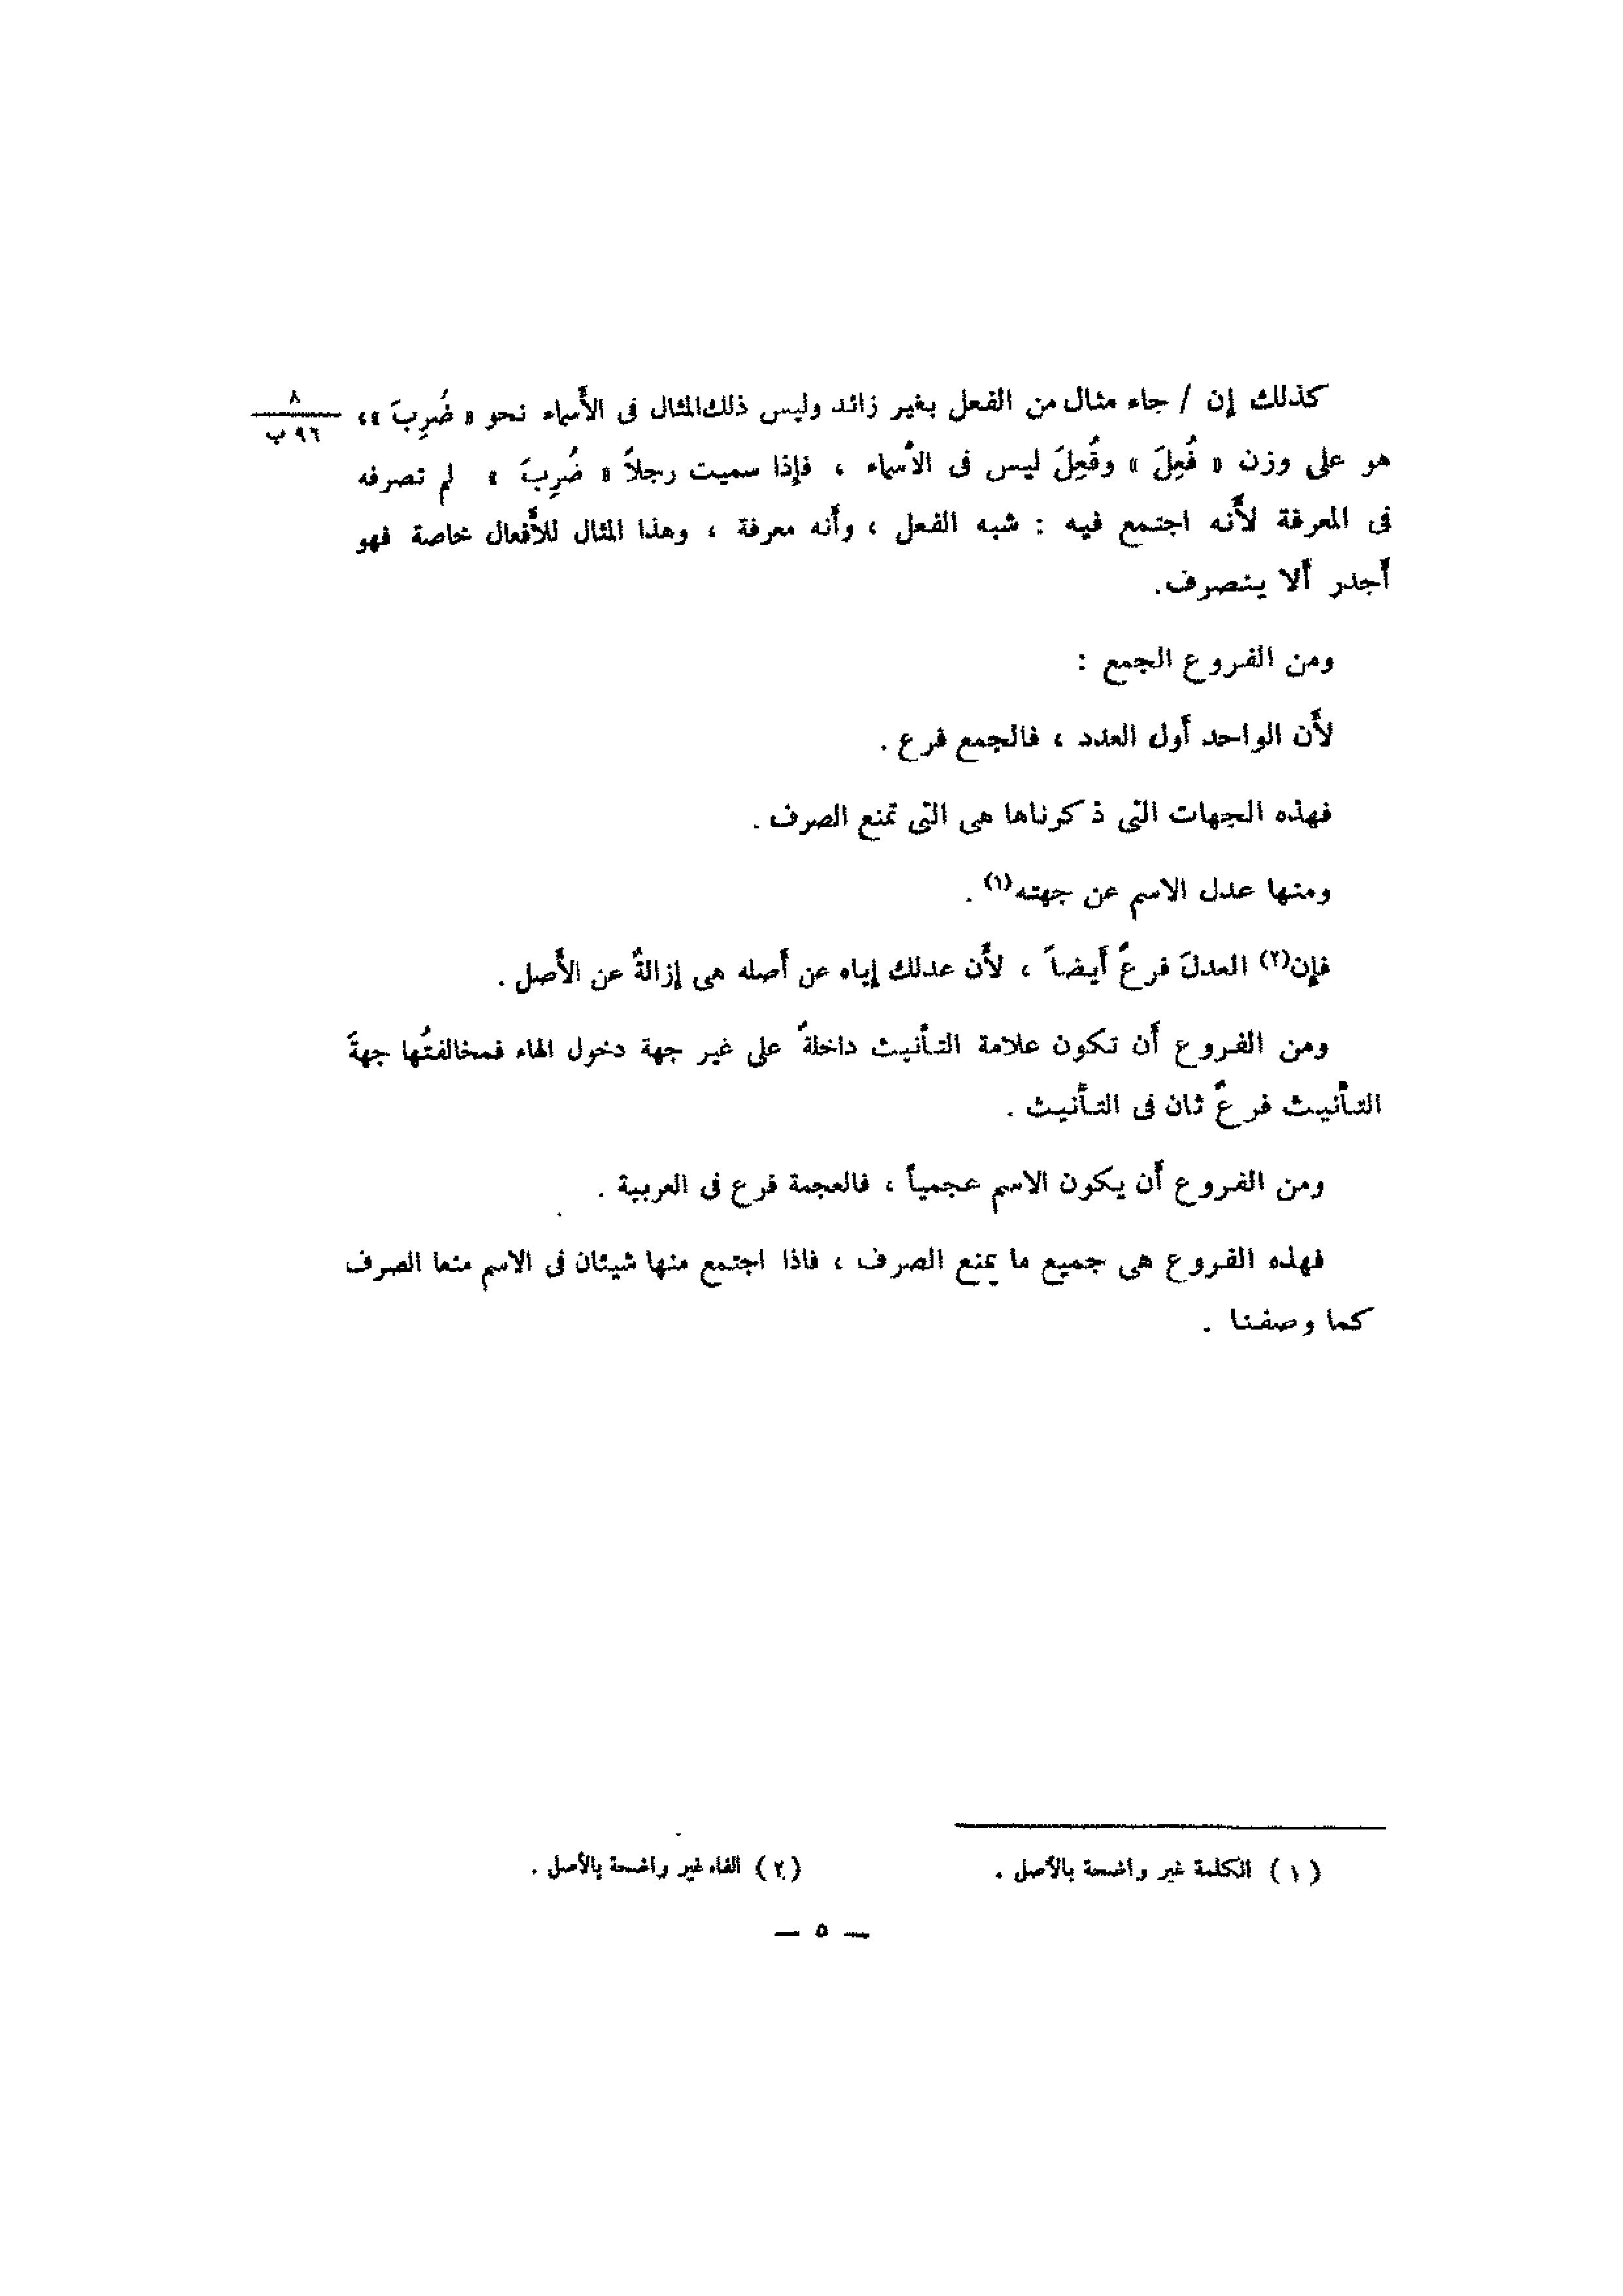 كذلك إن / جاء مثال من الفعل بغير زائد وليس ذلك المثال فى الأسماء نحو « ضُرِبَ »،
٨
٩٦ ب
هو على وزن « فُعِلَ » وفُعِلَ ليس فى الأسماء ، فإذا سميت رجلاً « ضُرِبَ » لم تصرفه
فى المعرفة لأَنه اجتمع فيه : شبه الفعل ، وأَنه معرفة ، وهذا المثال للأَفعال خاصة فهو
أَجدر أَلا ينصرف.
ومن الفروع الجمع :
لأَن الواحد أَول العدد ، فالجمع فرع .
فهذه الجهات التى ذكرناها هى التى تمنع الصرف .
ومنها عدل الاسم عن جهته(١) .
فإن(٢) العدلَ فرعٌ أَيضاً ، لأَن عدلك إياه عن أَصله هى إزالةٌ عن الأَصل .
ومن الفروع أَن تكون علامة التأنيث داخلةً على غير جهة دخول الهاء فمخالفتُها جهةَ
التأنيث فرعٌ ثان فى التأنيث .
ومن الفروع أَن يكون الاسم عجمياً ، فالعجمة فرع فى العربية .
فهذه الفروع هى جميع ما يمنع الصرف ، فاذا اجتمع منها شيئان فى الاسم منعا الصرف
كما وصفنا .
(١) الكلمة غير واضحة بالأصل .
(٢) الفاء غير واضحة بالأصل .
— ٥ —